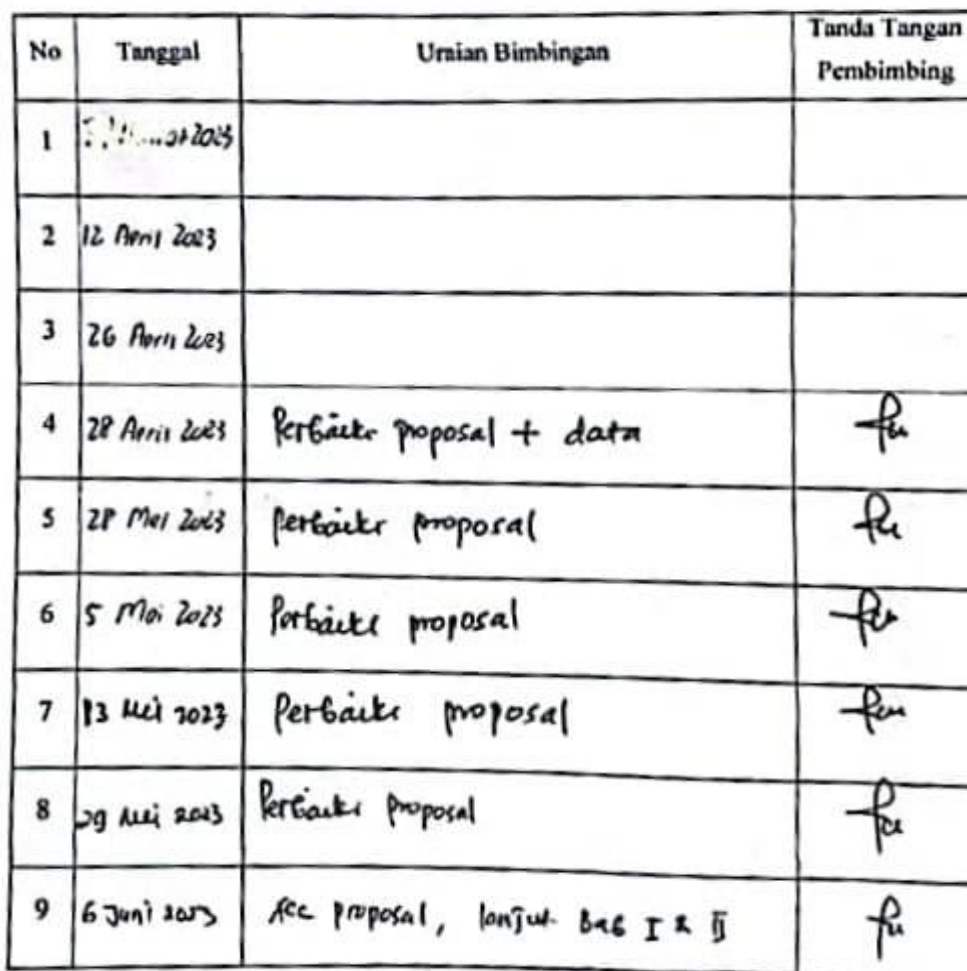 No Tanggal Uraian Bimbingan Tanda Tangan Pembimbing
1 2023
2 12 April 2023
3 26 April 2023
4 28 April 2023 Perbaiki proposal + data
5 28 Mei 2023 perbaiki proposal
6 5 Mei 2023 Perbaiki proposal
7 13 Mei 2023 Perbaiki proposal
8 29 Mei 2023 Perbaiki proposal
9 6 Juni 2023 Acc proposal, lanjut Bab I & II